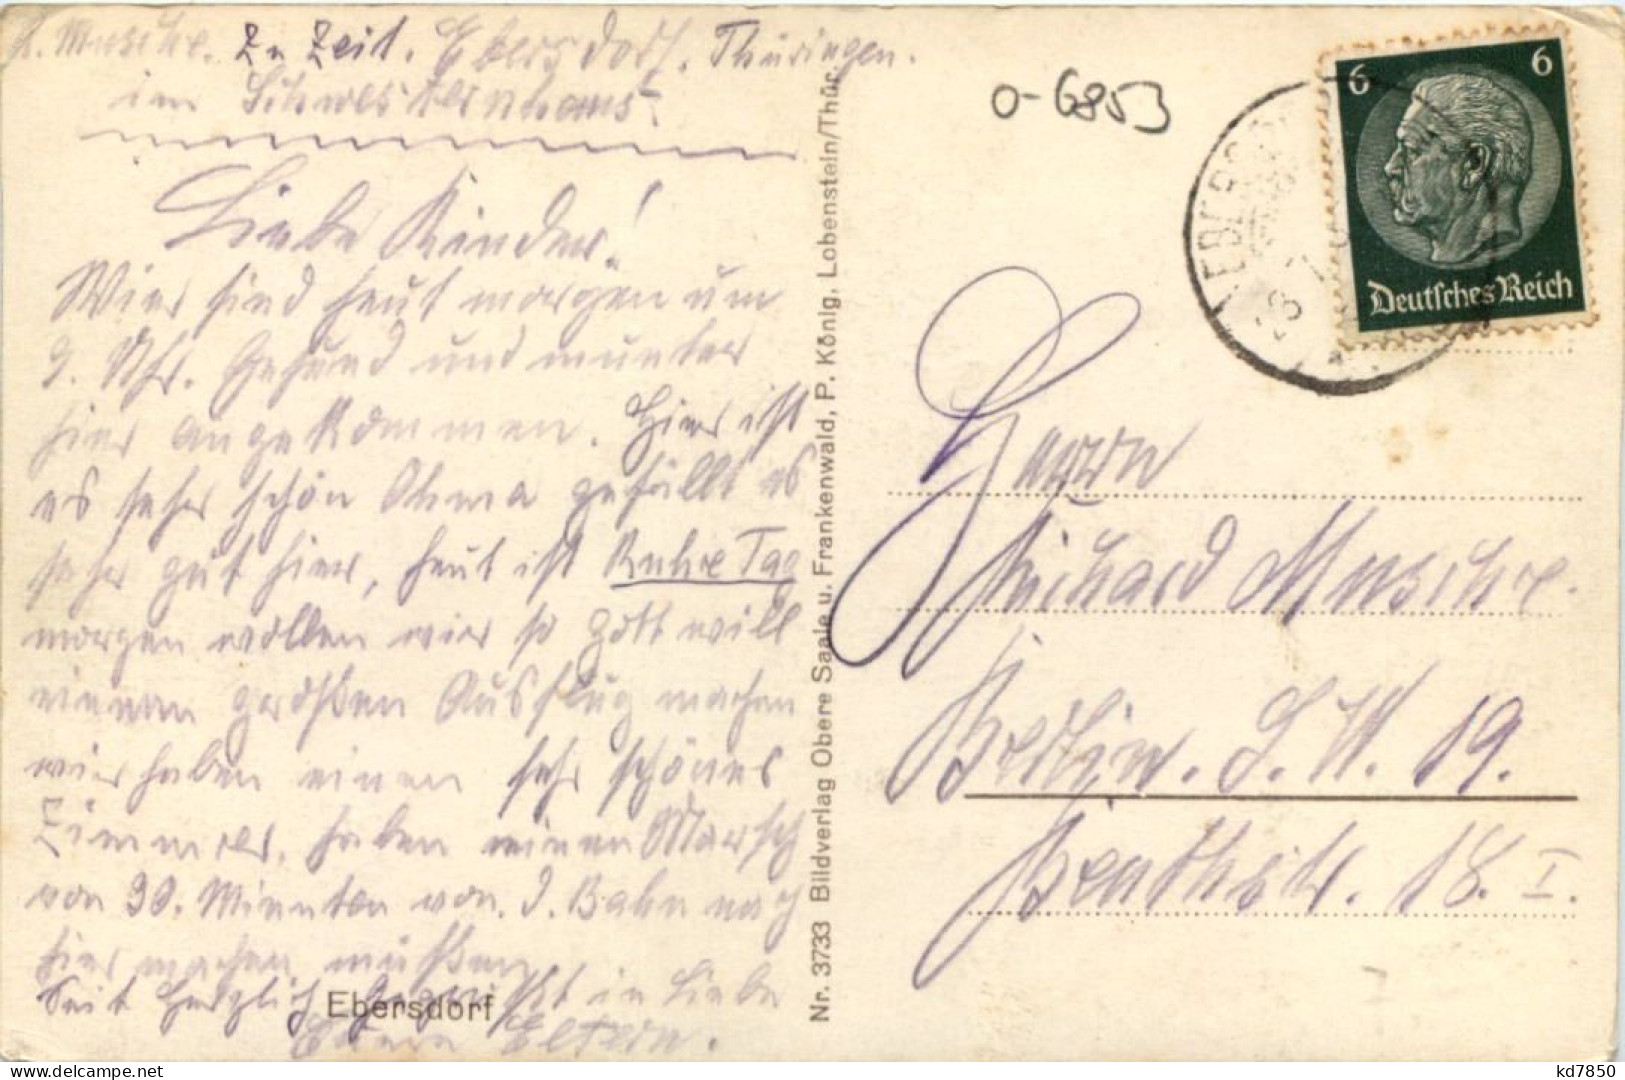 R. Muschke. Zu Zeit. Ebersdorf. Thüringen.
im Schwesternhaus.
Liebe Kinder!
Wier sind heut morgen um
9. Uhr. Gesund und munter
hier angekommen. Hier ist
es sehr schön Ohma gefällt es
sehr gut hier, heut ist Ruhe Tag
morgen wollen wier so Gott will
einen großen Ausflug machen
wier haben einen sehr schönes
Zimmer, haben einen Marsch
von 30. Minuten von. d. Bahn nach
hier machen müßen
Seit Herzlich Gegrüßt in Liebe
Eure Eltern.
Ebersdorf
Nr. 3733 Bildverlag Obere Saale u. Frankenwald, P. König, Lobenstein/Thür.
0-6853
6 6
Deutsches Reich
EBERSDORF
Herrn
Richard Muschke.
Berlin. S. W. 19.
Beuthstr. 18. I.